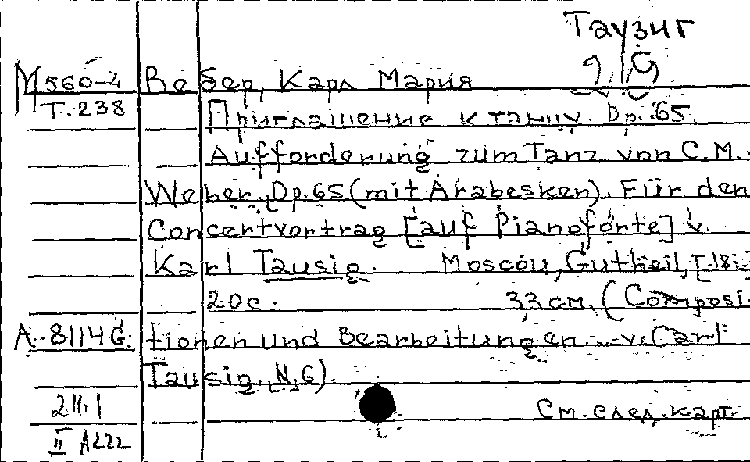 Таузиг
М 560-4 Вебер, Карл Мария
Т. 238
Приглашение к танцу. Op. 65.
Aufforderung zum Tanz von C.M.
Weber, Op. 65 (mit Arabesken). Für den
Concertvortrag [auf Pianoforte] v.
Karl Tausig. Moscou, Gutheil,
20 c. 33 см. (Composi-
А-8114G. tionen und Bearbeitungen ... v. Carl
Tausig, N. 6).
См. след. карт.
II A222